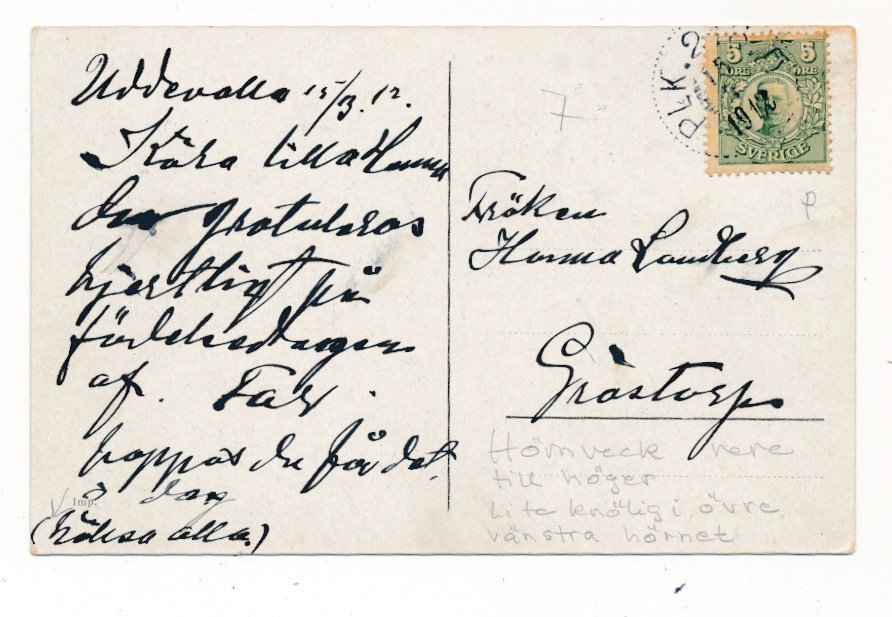 Uddevalla 15/3. 12.
Kära lilla Hanna
du gratuleras
hjertligt på
födelsedagen
af. Far.
hoppas du får det
i dag
(hälsa alla.)
Imp.
7
PLK
1912
5 5
ÖRE ÖRE
SVERIGE
P
Fröken
Hanna Landberg
Grästorp
Hörnveck nere
till höger
Lite knölig i övre
vänstra hörnet